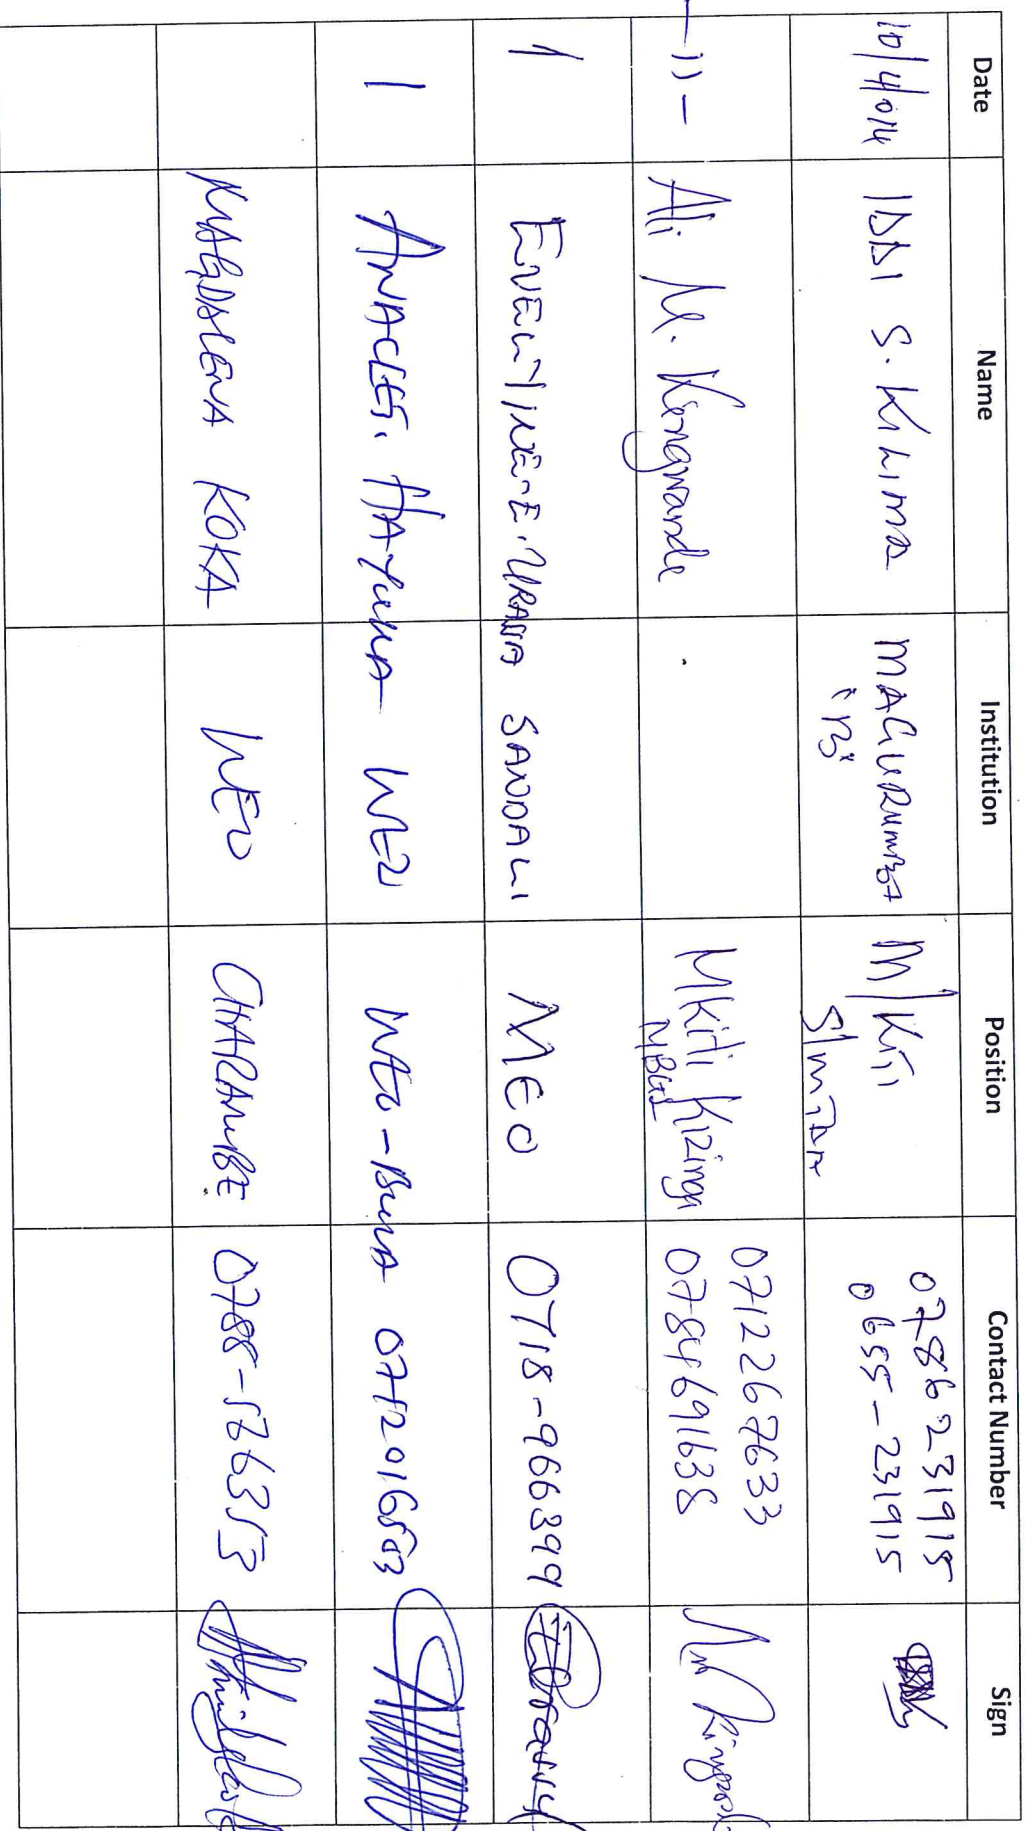 Date Name Institution Position Contact Number Sign
10/4/014 IDDI S. KILIMA MAGURUMBA M/KITI 0786231915
"B" S/MTAA 0655-231915
-11- Ali M. Kiongwande Mkiti Kizinga 0712267633
MBGL 0784691638
EVELYINE-E.URASSA SANDALI MEO 0718-966399
ANACLET. HAYUMA WEO WEO-BUZA 0712016503
MAGDALENA KOKA WEO CHARAMBE 0788-576353